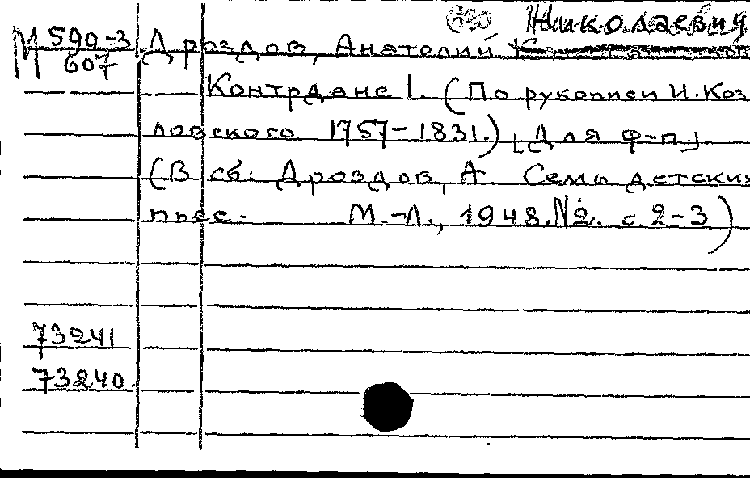 Николаевич
М 590-3 Дроздов, Анатолий
607
Контрданс I. (По рукописи И. Коз
ловского 1757-1831.) [Для ф-п.]
(В сб. Дроздов, А. Семь детских
пьес. М.-Л., 1948. №2. с 2-3)
73241
73240